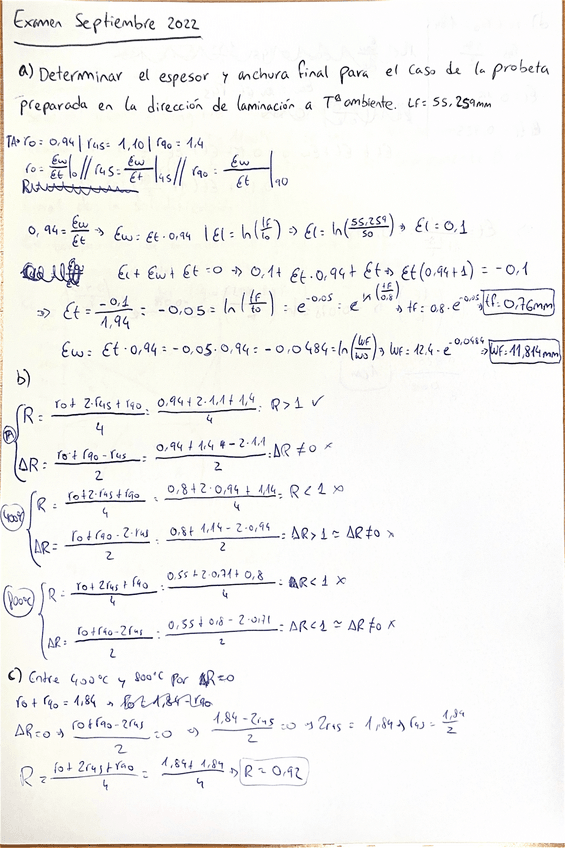 Examen Septiembre 2022
a) Determinar el espesor y anchura final para el caso de la probeta
preparada en la dirección de laminación a Tª ambiente. Lf = 55,259mm
TAª r0 = 0,94 | r45 = 1,10 | r90 = 1,4
r0 = Ew/Et |0 // r45 = Ew/Et |45 // r90 = Ew/Et |90
0,94 = Ew/Et → Ew = Et · 0,94 | El = ln(lf/l0) ⇒ El = ln(55,259/50) ⇒ El = 0,1
El + Ew + Et = 0 → 0,1 + Et · 0,94 + Et → Et(0,94+1) = -0,1
⇒ Et = -0,1/1,94 = -0,05 = ln(tf/t0) = e^-0,05 = e^ln(tf/0,8) → tf = 0,8 · e^-0,05 → tf = 0,76mm
Ew = Et · 0,94 = -0,05 · 0,94 = -0,0484 = ln(wf/w0) → wf = 12,4 · e^-0,0484 → wf = 11,814mm
b)
TA R = (r0 + 2·r45 + r90)/4 = (0,94 + 2·1,1 + 1,4)/4 = R > 1 ✓
ΔR = (r0 + r90 - r45)/2 = (0,94 + 1,4 - 2·1,1)/2 = ΔR ≠ 0 x
400ºC R = (r0 + 2·r45 + r90)/4 = (0,8 + 2·0,94 + 1,14)/4 = R < 1 x
ΔR = (r0 + r90 - 2·r45)/2 = (0,8 + 1,14 - 2·0,94)/2 = ΔR > 1 ≃ ΔR ≠ 0 x
800ºC R = (r0 + 2r45 + r90)/4 = (0,55 + 2·0,71 + 0,8)/4 = R < 1 x
ΔR = (r0 + r90 - 2r45)/2 = (0,55 + 0,8 - 2·0,71)/2 = ΔR < 1 ≃ ΔR ≠ 0 x
c) Entre 400ºC y 800ºC por ΔR = 0
r0 + r90 = 1,84 →
ΔR = 0 → (r0 + r90 - 2r45)/2 = 0 → (1,84 - 2r45)/2 = 0 → 2r45 = 1,84 → r45 = 1,84/2
R = (r0 + 2r45 + r90)/4 = (1,84 + 1,84)/4 → R = 0,92